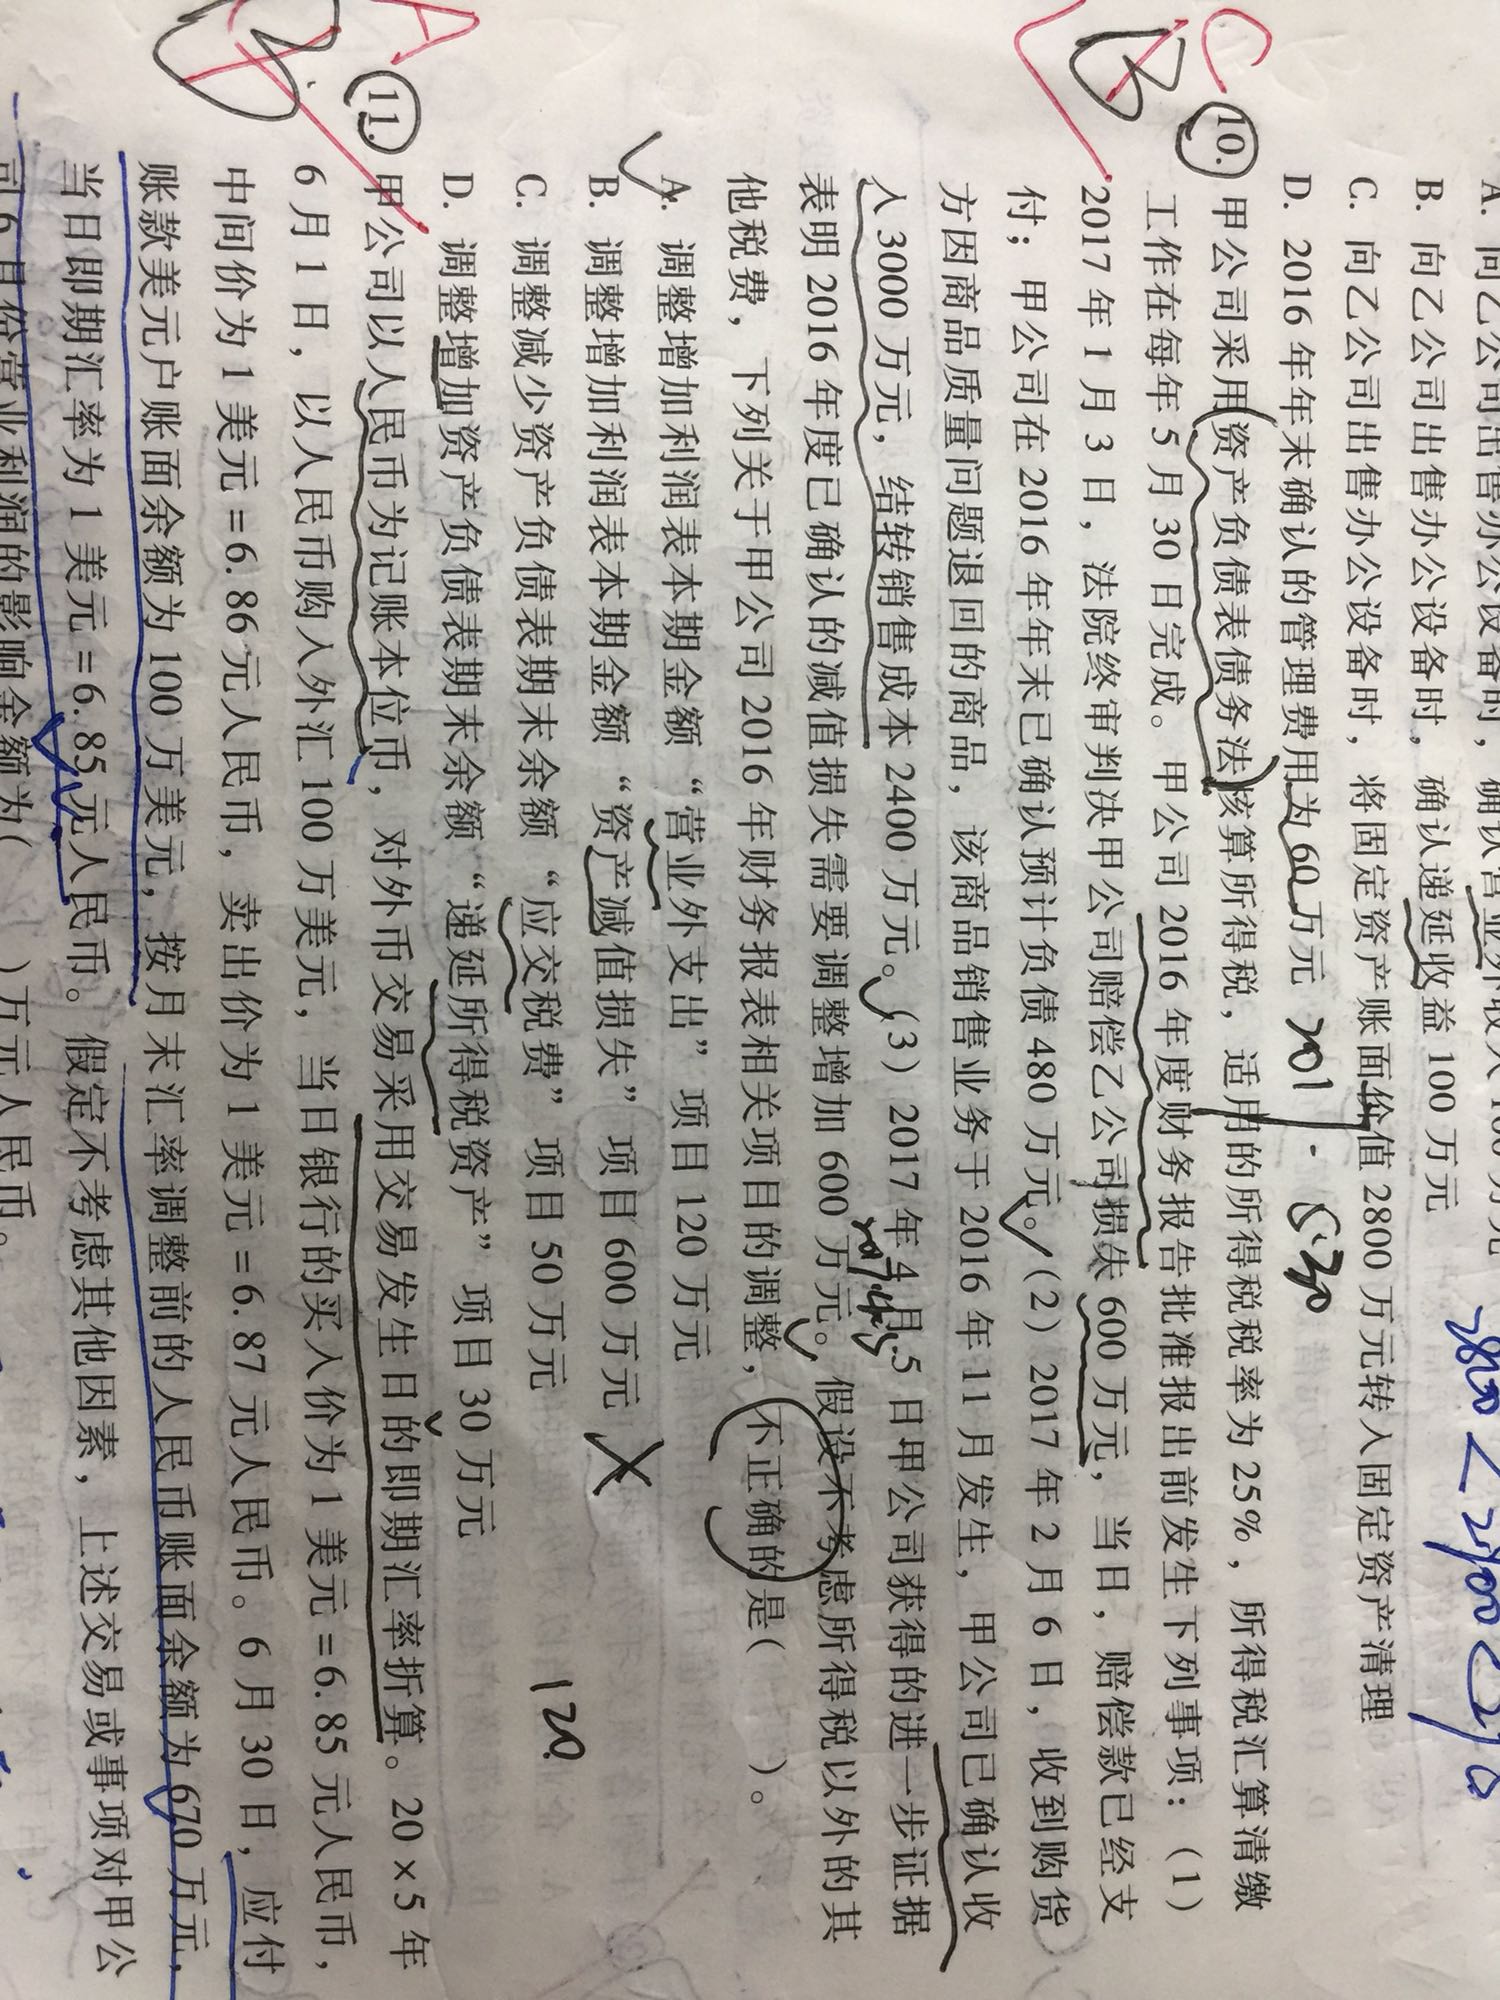 A. 向乙公司出售办公设备时，确认营业外收入100万元
B. 向乙公司出售办公设备时，确认递延收益100万元
C. 向乙公司出售办公设备时，将固定资产账面价值2800万元转入固定资产清理
D. 2016年年末确认的管理费用为60万元
10. 甲公司采用资产负债表债务法核算所得税，适用的所得税税率为25%，所得税汇算清缴
工作在每年5月30日完成。甲公司2016年度财务报告批准报出前发生下列事项：（1）
2017年1月3日，法院终审判决甲公司赔偿乙公司损失600万元，当日，赔偿款已经支
付；甲公司在2016年年末已确认预计负债480万元。（2）2017年2月6日，收到购货
方因商品质量问题退回的商品，该商品销售业务于2016年11月发生，甲公司已确认收
入3000万元，结转销售成本2400万元。（3）2017年4月5日甲公司获得的进一步证据
表明2016年度已确认的减值损失需要调整增加600万元。假设不考虑所得税以外的其
他税费，下列关于甲公司2016年财务报表相关项目的调整，不正确的是（ ）。
A. 调整增加利润表本期金额“营业外支出”项目120万元
B. 调整增加利润表本期金额“资产减值损失”项目600万元
C. 调整减少资产负债表期末余额“应交税费”项目50万元
D. 调整增加资产负债表期末余额“递延所得税资产”项目30万元
120
C
B
11. 甲公司以人民币为记账本位币，对外币交易采用交易发生日的即期汇率折算。20×5年
6月1日，以人民币购入外汇100万美元，当日银行的买入价为1美元=6.85元人民币，
中间价为1美元=6.86元人民币，卖出价为1美元=6.87元人民币。6月30日，应付
账款美元户账面余额为100万美元，按月末汇率调整前的人民币账面余额为670万元，
当日即期汇率为1美元=6.85元人民币。假定不考虑其他因素，上述交易或事项对甲公
司6月份营业利润的影响金额为（ ）万元人民币。
A